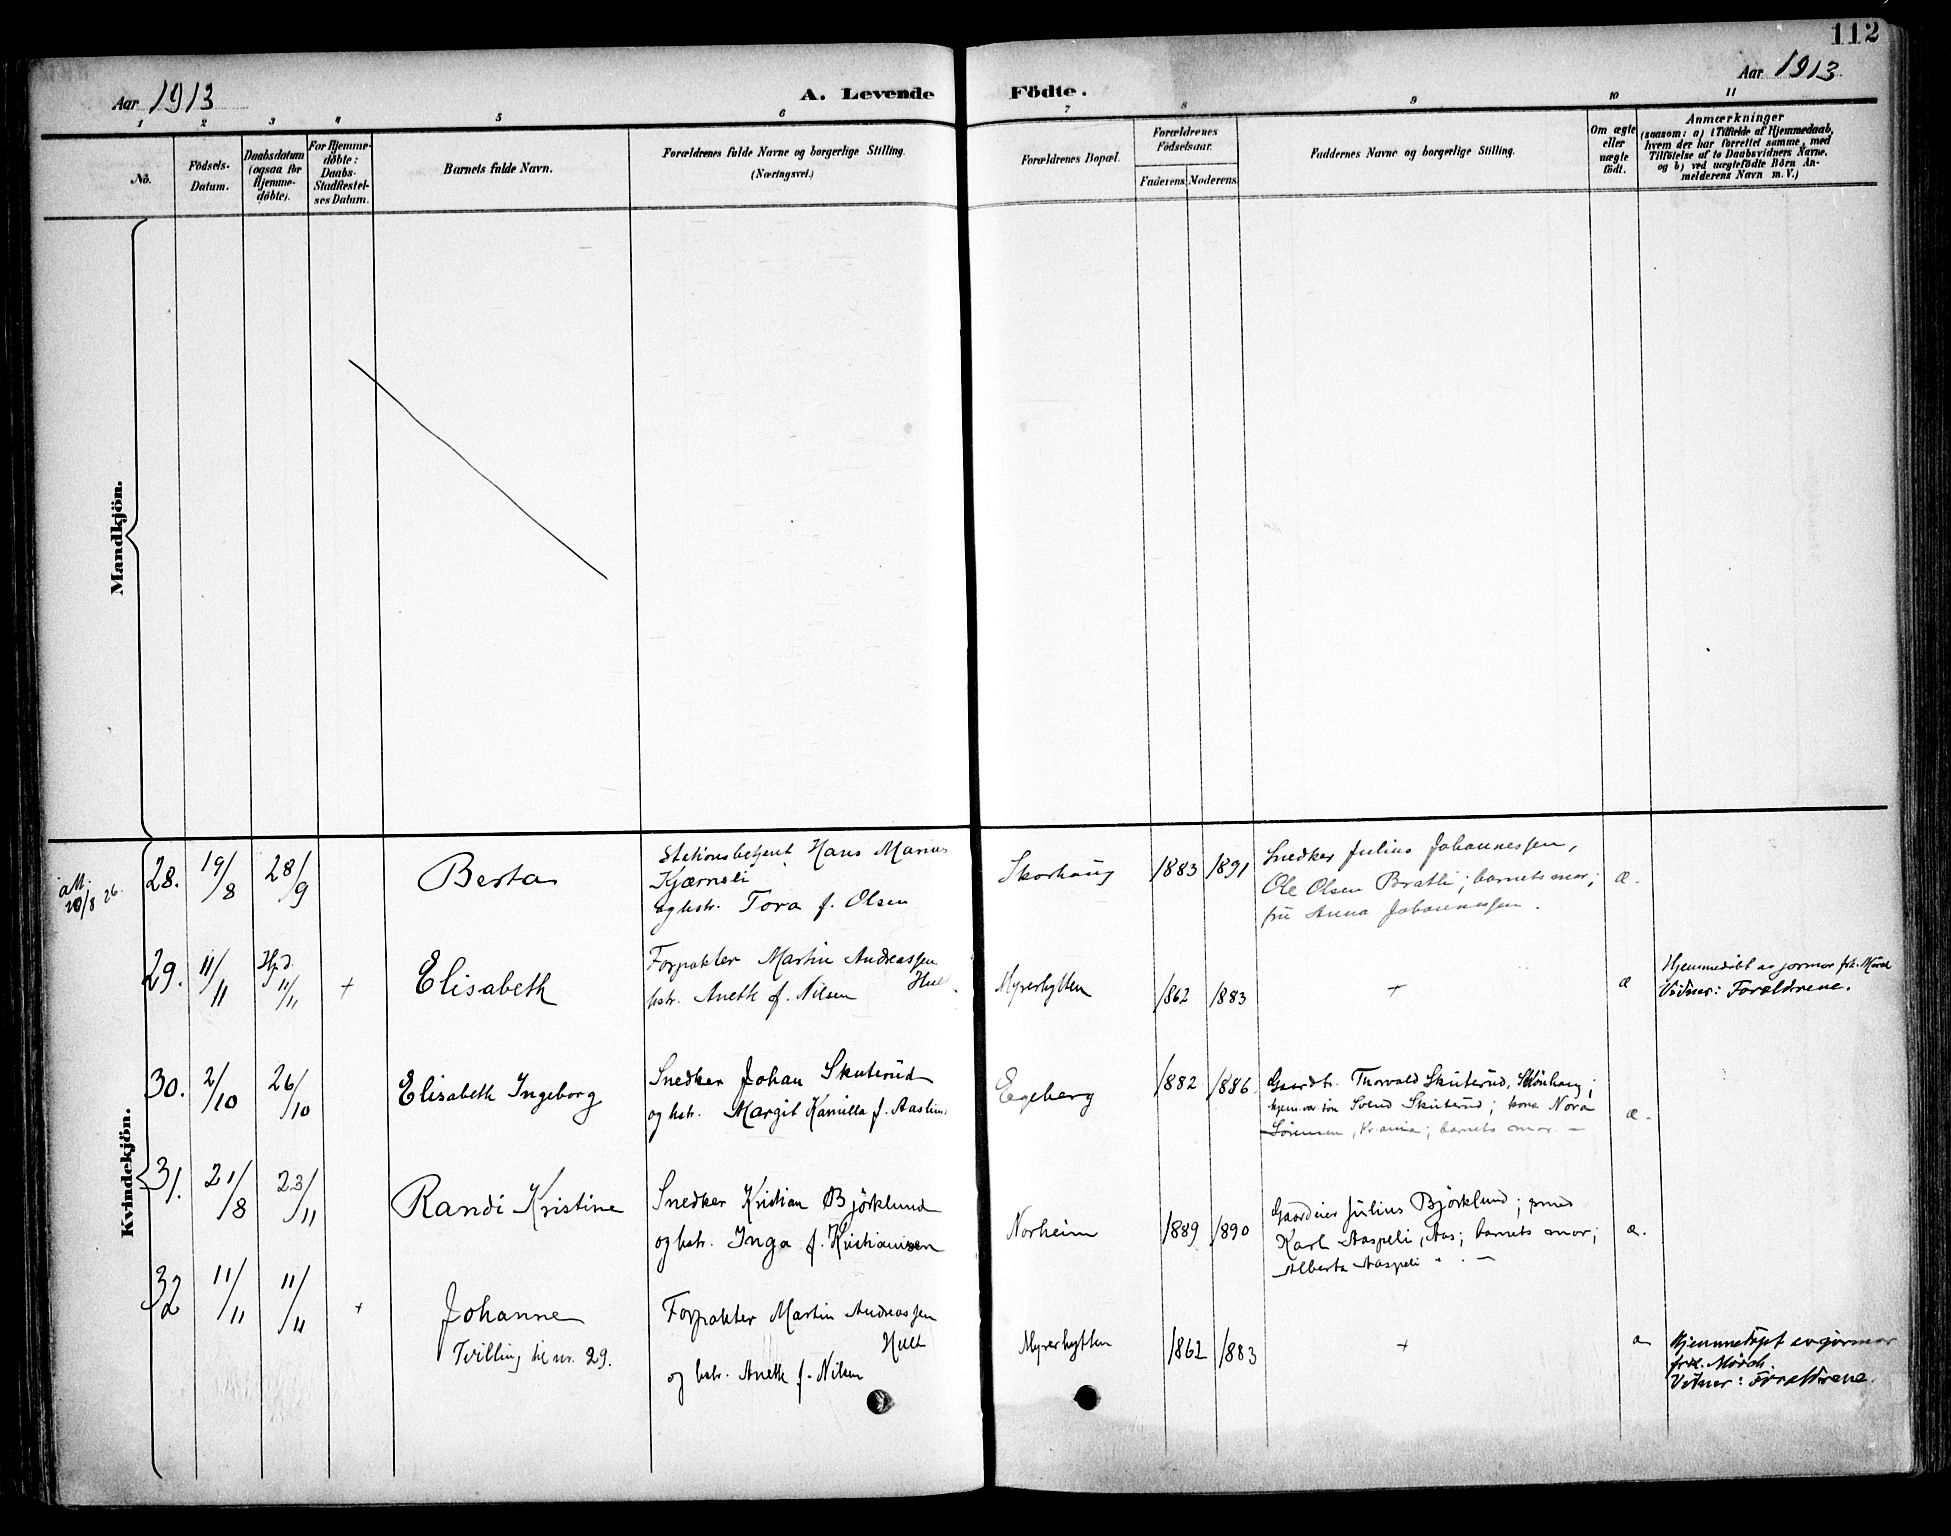 112
Aar 1913
A. Levende Födte.
Aar 1913
1 2 3 4 5 6 7 8 9 10 11
No.
Födsels-
Datum.
Daabsdatum
(ogsaa for
Hjemme-
döbte).
For Hjemme-
döbte:
Daabs-
Stadfæstel-
ses Datum.
Barnets fulde Navn.
Forældrenes fulde Navne og borgerlige Stilling.
(Næringsvei.)
Forældrenes Bopæl.
Forældrenes
Födselsaar.
Faderens. Moderens.
Faddernes Navne og borgerlige Stilling.
Om ægte
eller
uægte
födt.
Anmærkninger
(saasom: a) i Tilfælde af Hjemmedaab,
hvem der har forrettet samme, med
Tilföielse af to Daabsvidners Navne,
og b) ved uægtefödte Börn An-
melderens Navn m. V.)
Mandkjön.
Kvindekjön.
att.
20/8 26.
28. 19/8 28/9
Berta
Stationsbetjent Hans Marius
Kjærnsli
og hstr. Tora f. Olsen
Skorhaug
1883 1891
Snedker Julius Johannessen,
Ole Olsen Bratli; barnets mor;
frü Anna Johannessen.
æ.
29. 11/11 Hjd. 11/11 +
Elisabeth
Forpakter Martin Andreassen
Hult.
hstr. Aneth f. Nilsen
Myrerhytten
1862 1883
+
æ
Hjemmedöbt av jormor frk. Mörch
Vidner: Forældrene.
30. 2/10 26/10
Elisabeth Ingeborg
Snedker Johan Skuterüd
og hstr. Margit Kamilla f. Aaslün
Egeberg
1882 1886
Gaardbr. Thorvald Skuterüd, Skönhaug;
hjem.vær. sön Svend Skuterüd; kone Nora
Sörensen, Kr.ania; barnets mor. —
æ.
31. 21/8 23/11
Randi Kristine
Snedker Kristian Björklund
og hstr. Inga f. Kristiansen
Norheim
1889 1890
Gaardeier Jülius Björklund; smed
Karl Aaspeli, Aas; barnets mor;
Alberta Aaspeli " . —
æ.
32 11/11 11/11 +
Johanne
Tvilling til nr. 29.
Forpakter Martin Andreassen
Hult
og hstr. Aneth f. Nilsen
Myrerhytten
1862 1883
+
æ
Hjemmedöpt av jormor
frk. Mörch.
Vidner: Forældrene.